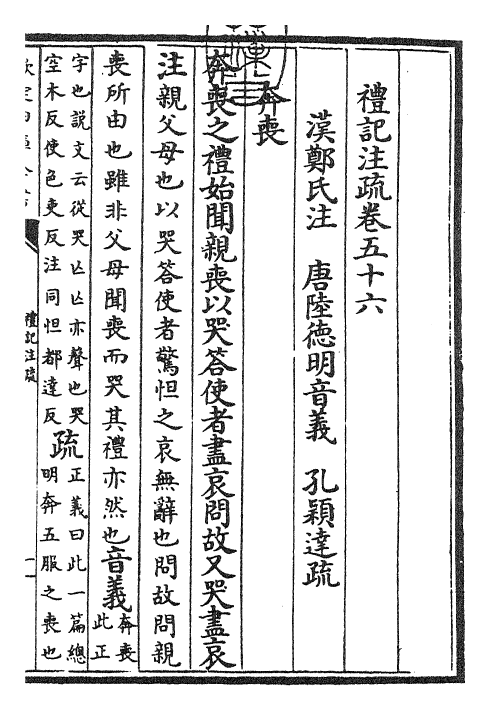 禮記注疏卷五十六
漢鄭氏注 唐陸德明音義 孔穎達疏
奔喪
奔喪之禮始聞親喪以哭答使者盡哀問故又哭盡哀
注親父母也以哭答使者驚怛之哀無辭也問故問親
喪所由也雖非父母聞喪而哭其禮亦然也音義奔喪
此正
字也説文云從哭亾亾亦聲也哭
空木反使色吏反注同怛都達反
疏正義曰此一篇總
明奔五服之喪也
禮記注疏
一